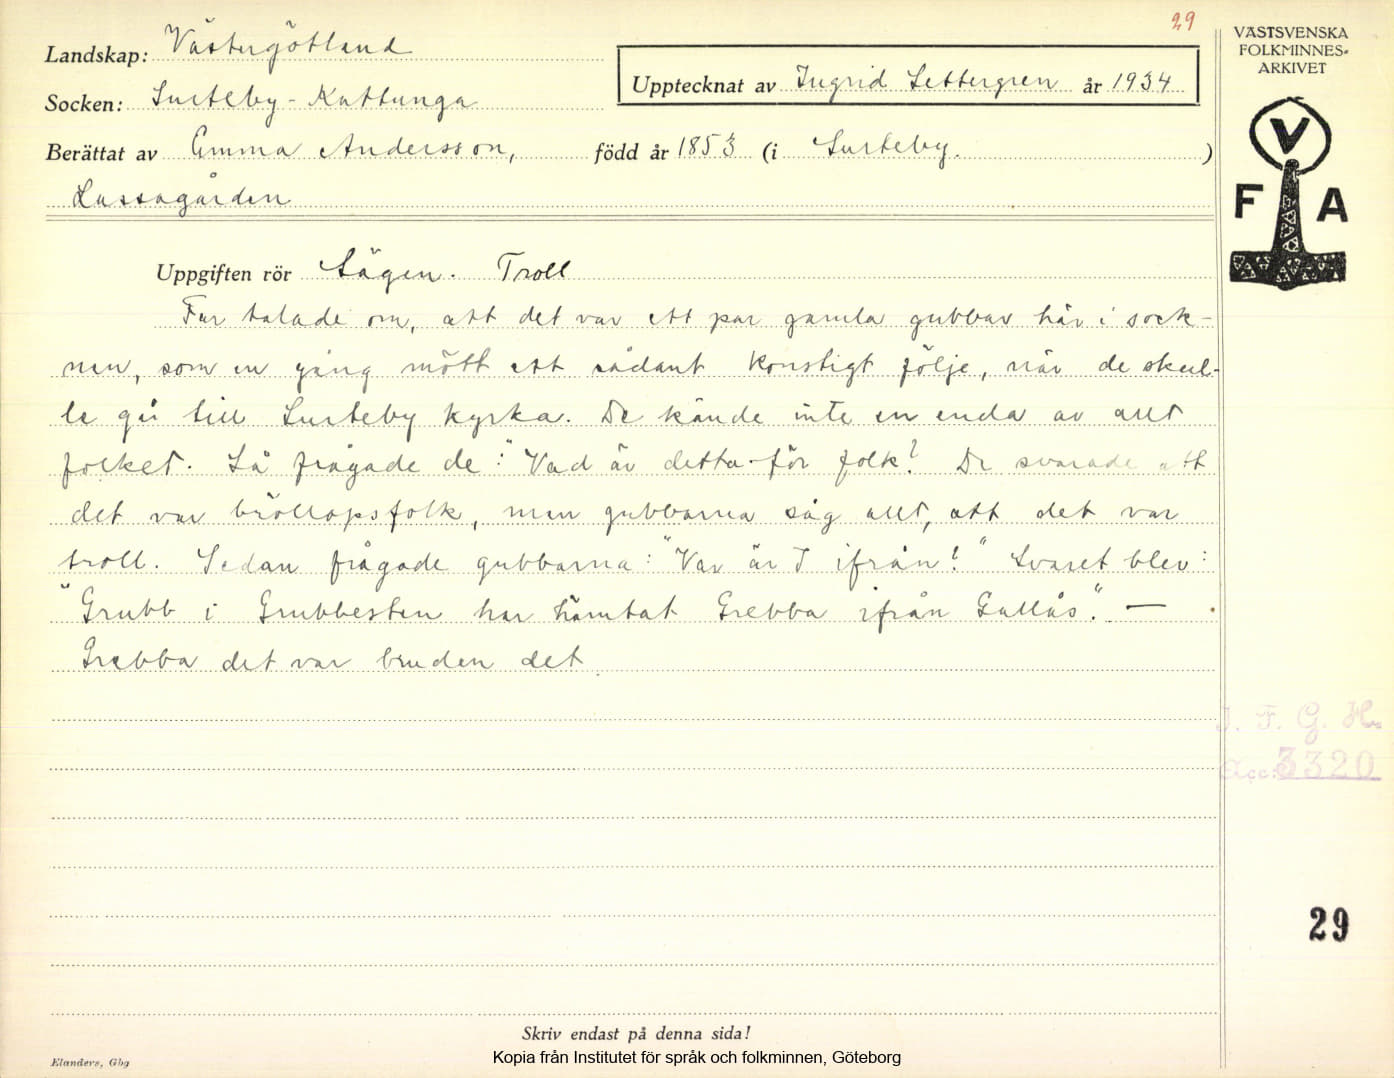 29
VÄSTSVENSKA
FOLKMINNES-
ARKIVET
Landskap: Västergötland
Upptecknat av Ingrid Settergren år 1934
Socken: Surteby-Kattunga
Berättat av Emma Andersson, född år 1853 (i Surteby.)
Lassagården
V
F A
Uppgiften rör Sägen. Troll
Far talade om, att det var ett par gamla gubbar här i sock-
nen, som en gång mött ett sådant konstigt följe, när de skul-
le gå till Surteby kyrka. De kände inte en enda av allt
folket. Så frågade de: "Vad är detta för folk? De svarade att
det var bröllopsfolk, men gubbarna såg allt, att det var
troll. Sedan frågade gubbarna: "Var är I ifrån?" Svaret blev:
"Grubb i Grubbesten har hämtat Grebba ifrån Gallås". —
Grebba det var bruden det
I. F. G. H.
Acc: 3320
29
Skriv endast på denna sida!
Elanders, Gbg
Kopia från Institutet för språk och folkminnen, Göteborg